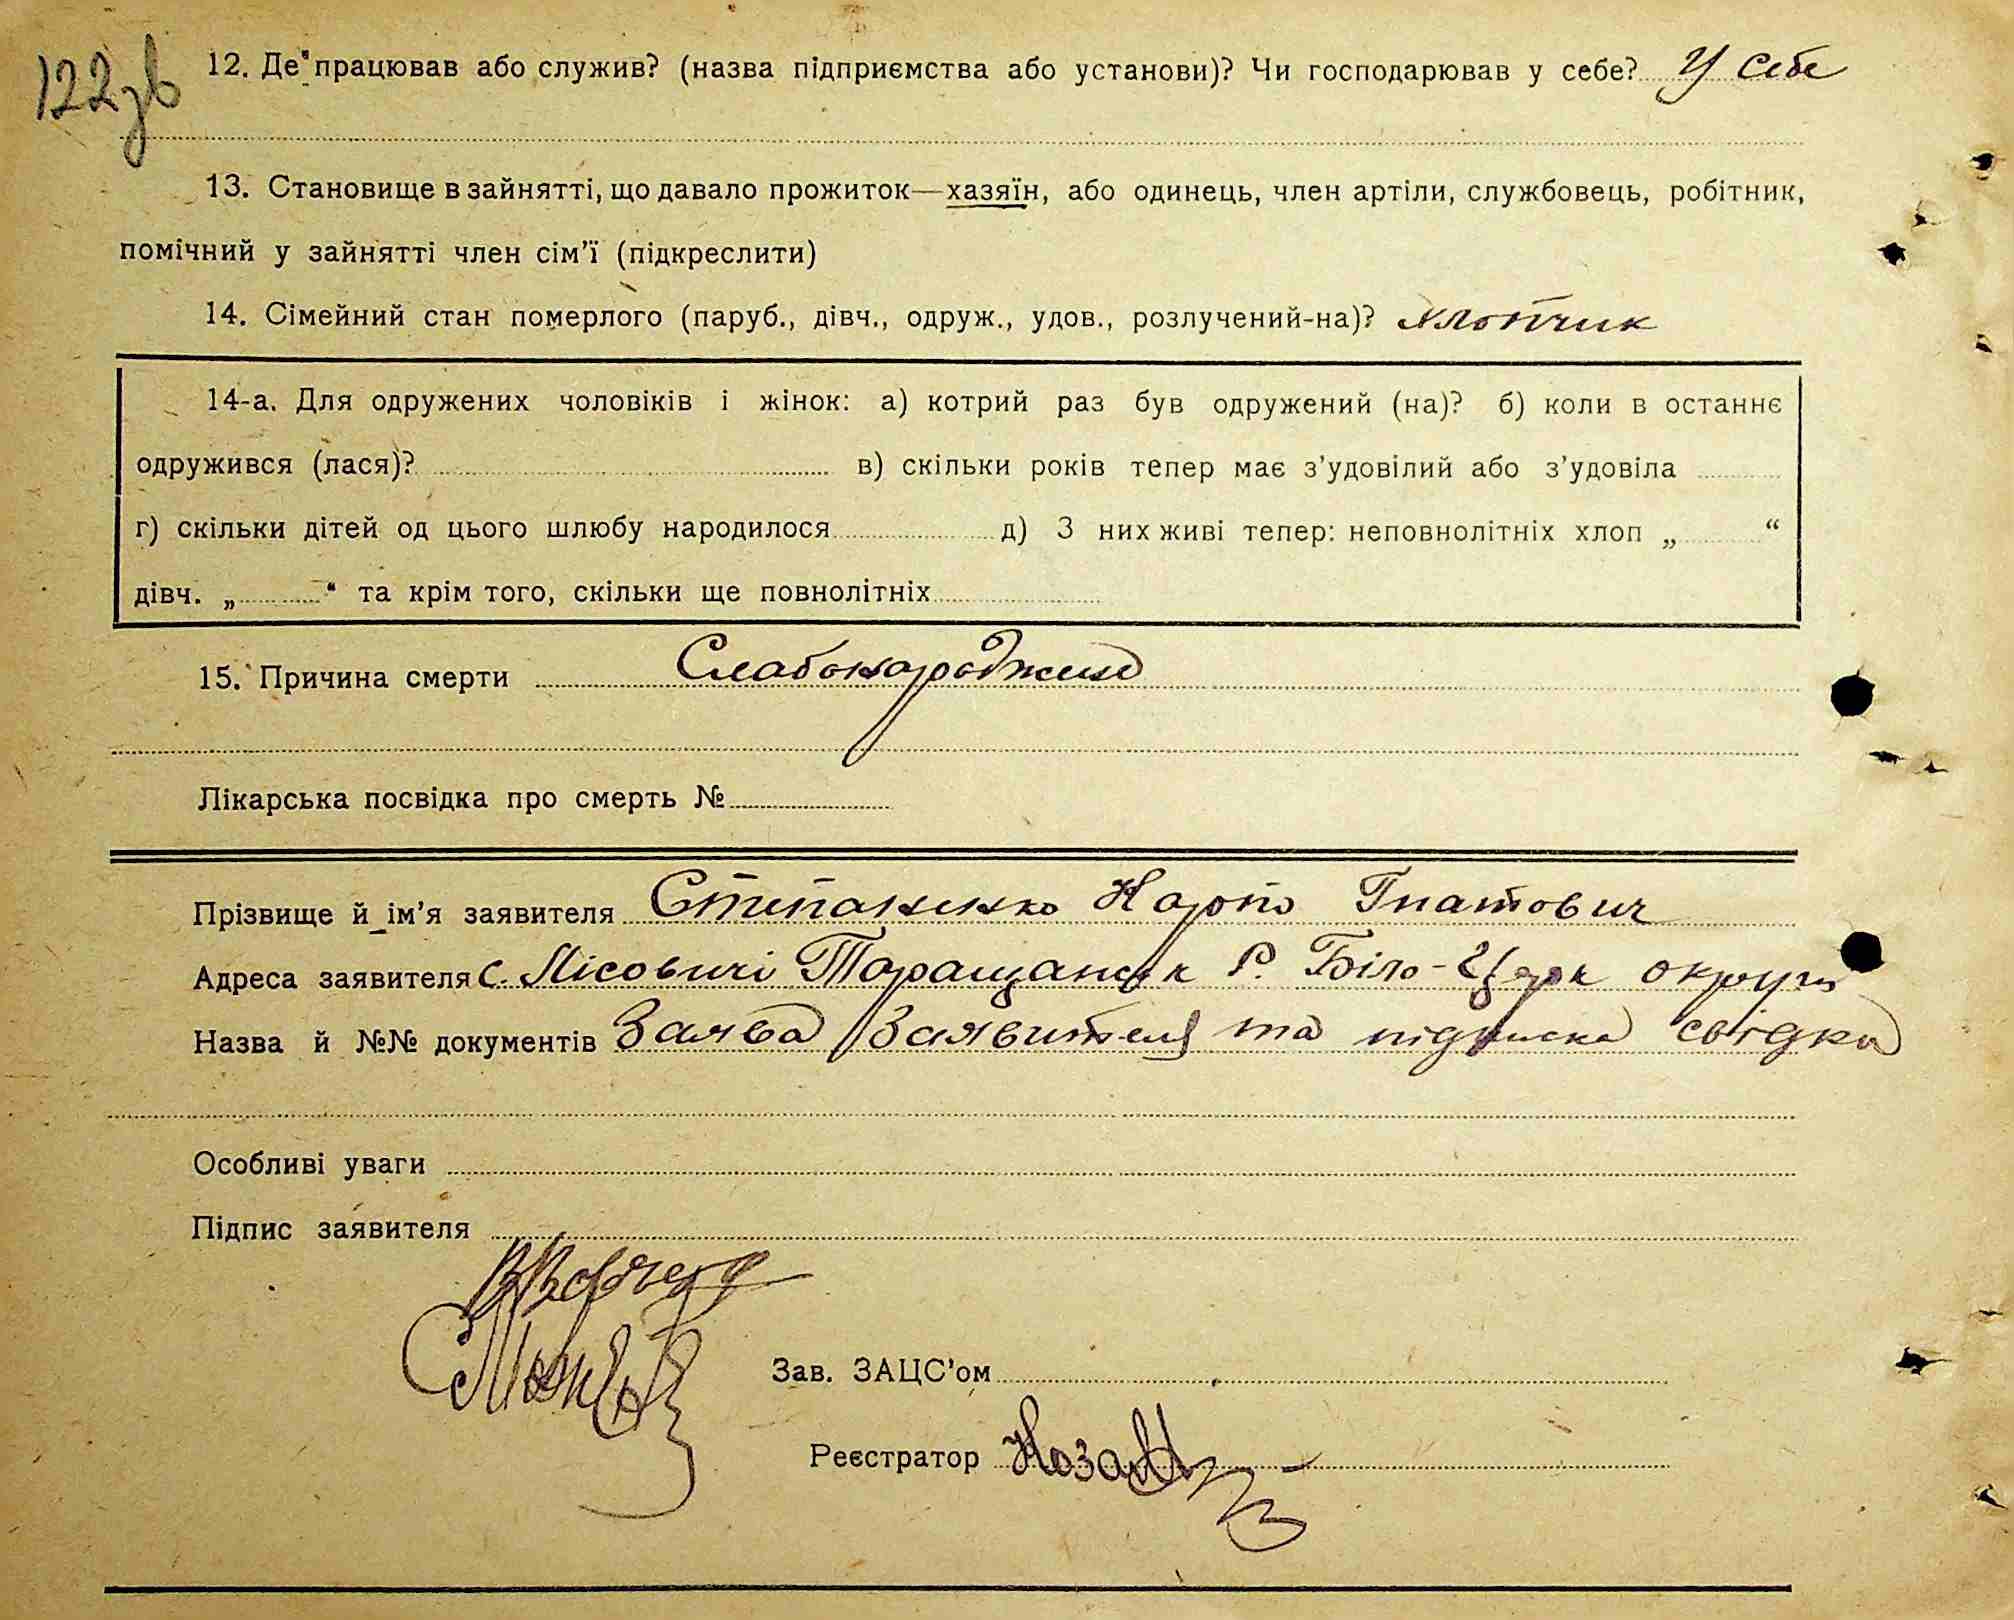 122 зв
12. Де працював або служив? (назва підприємства або установи)? Чи господарював у себе? У себе
13. Становище в зайнятті, що давало прожиток—хазяїн, або одинець, член артіли, службовець, робітник,
помічний у зайнятті член сім'ї (підкреслити)
14. Сімейний стан померлого (паруб., дівч., одруж., удов., розлучений-на)? хлопчик
14-а. Для одружених чоловіків і жінок: а) котрий раз був одружений (на)? б) коли в останнє
одружився (лася)? в) скільки років тепер має з'удовілий або з'удовіла
г) скільки дітей од цього шлюбу народилося д) З них живі тепер: неповнолітніх хлоп „ “
дівч. „ “ та крім того, скільки ще повнолітніх
15. Причина смерти Слабонароджене
Лікарська посвідка про смерть №
Прізвище й ім'я заявителя Степаненко Карпо Гнатович
Адреса заявителя с. Лісовичі Таращанськ Р. Біло-Церк округи
Назва й №№ документів Заява Заявителя та підписка свідка
Особливі уваги
Підпис заявителя
Зав. ЗАЦС'ом
Реєстратор